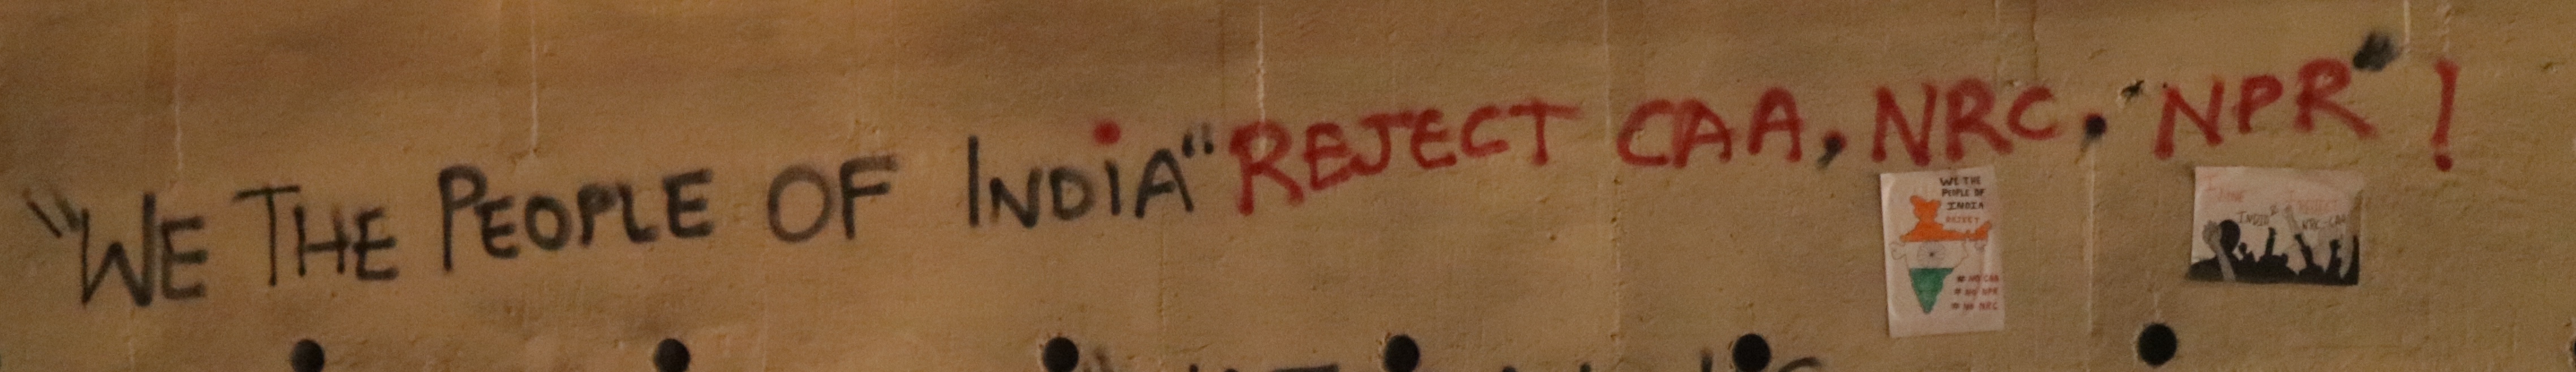 "WE THE PEOPLE OF INDiA" REJECT CAA, NRC, "NPR"!
WE THE
PEOPLE OF
INDIA
REJECT
NO CAA
NO NPR
NO NRC
INDIA
REJECT
NRC-CAA